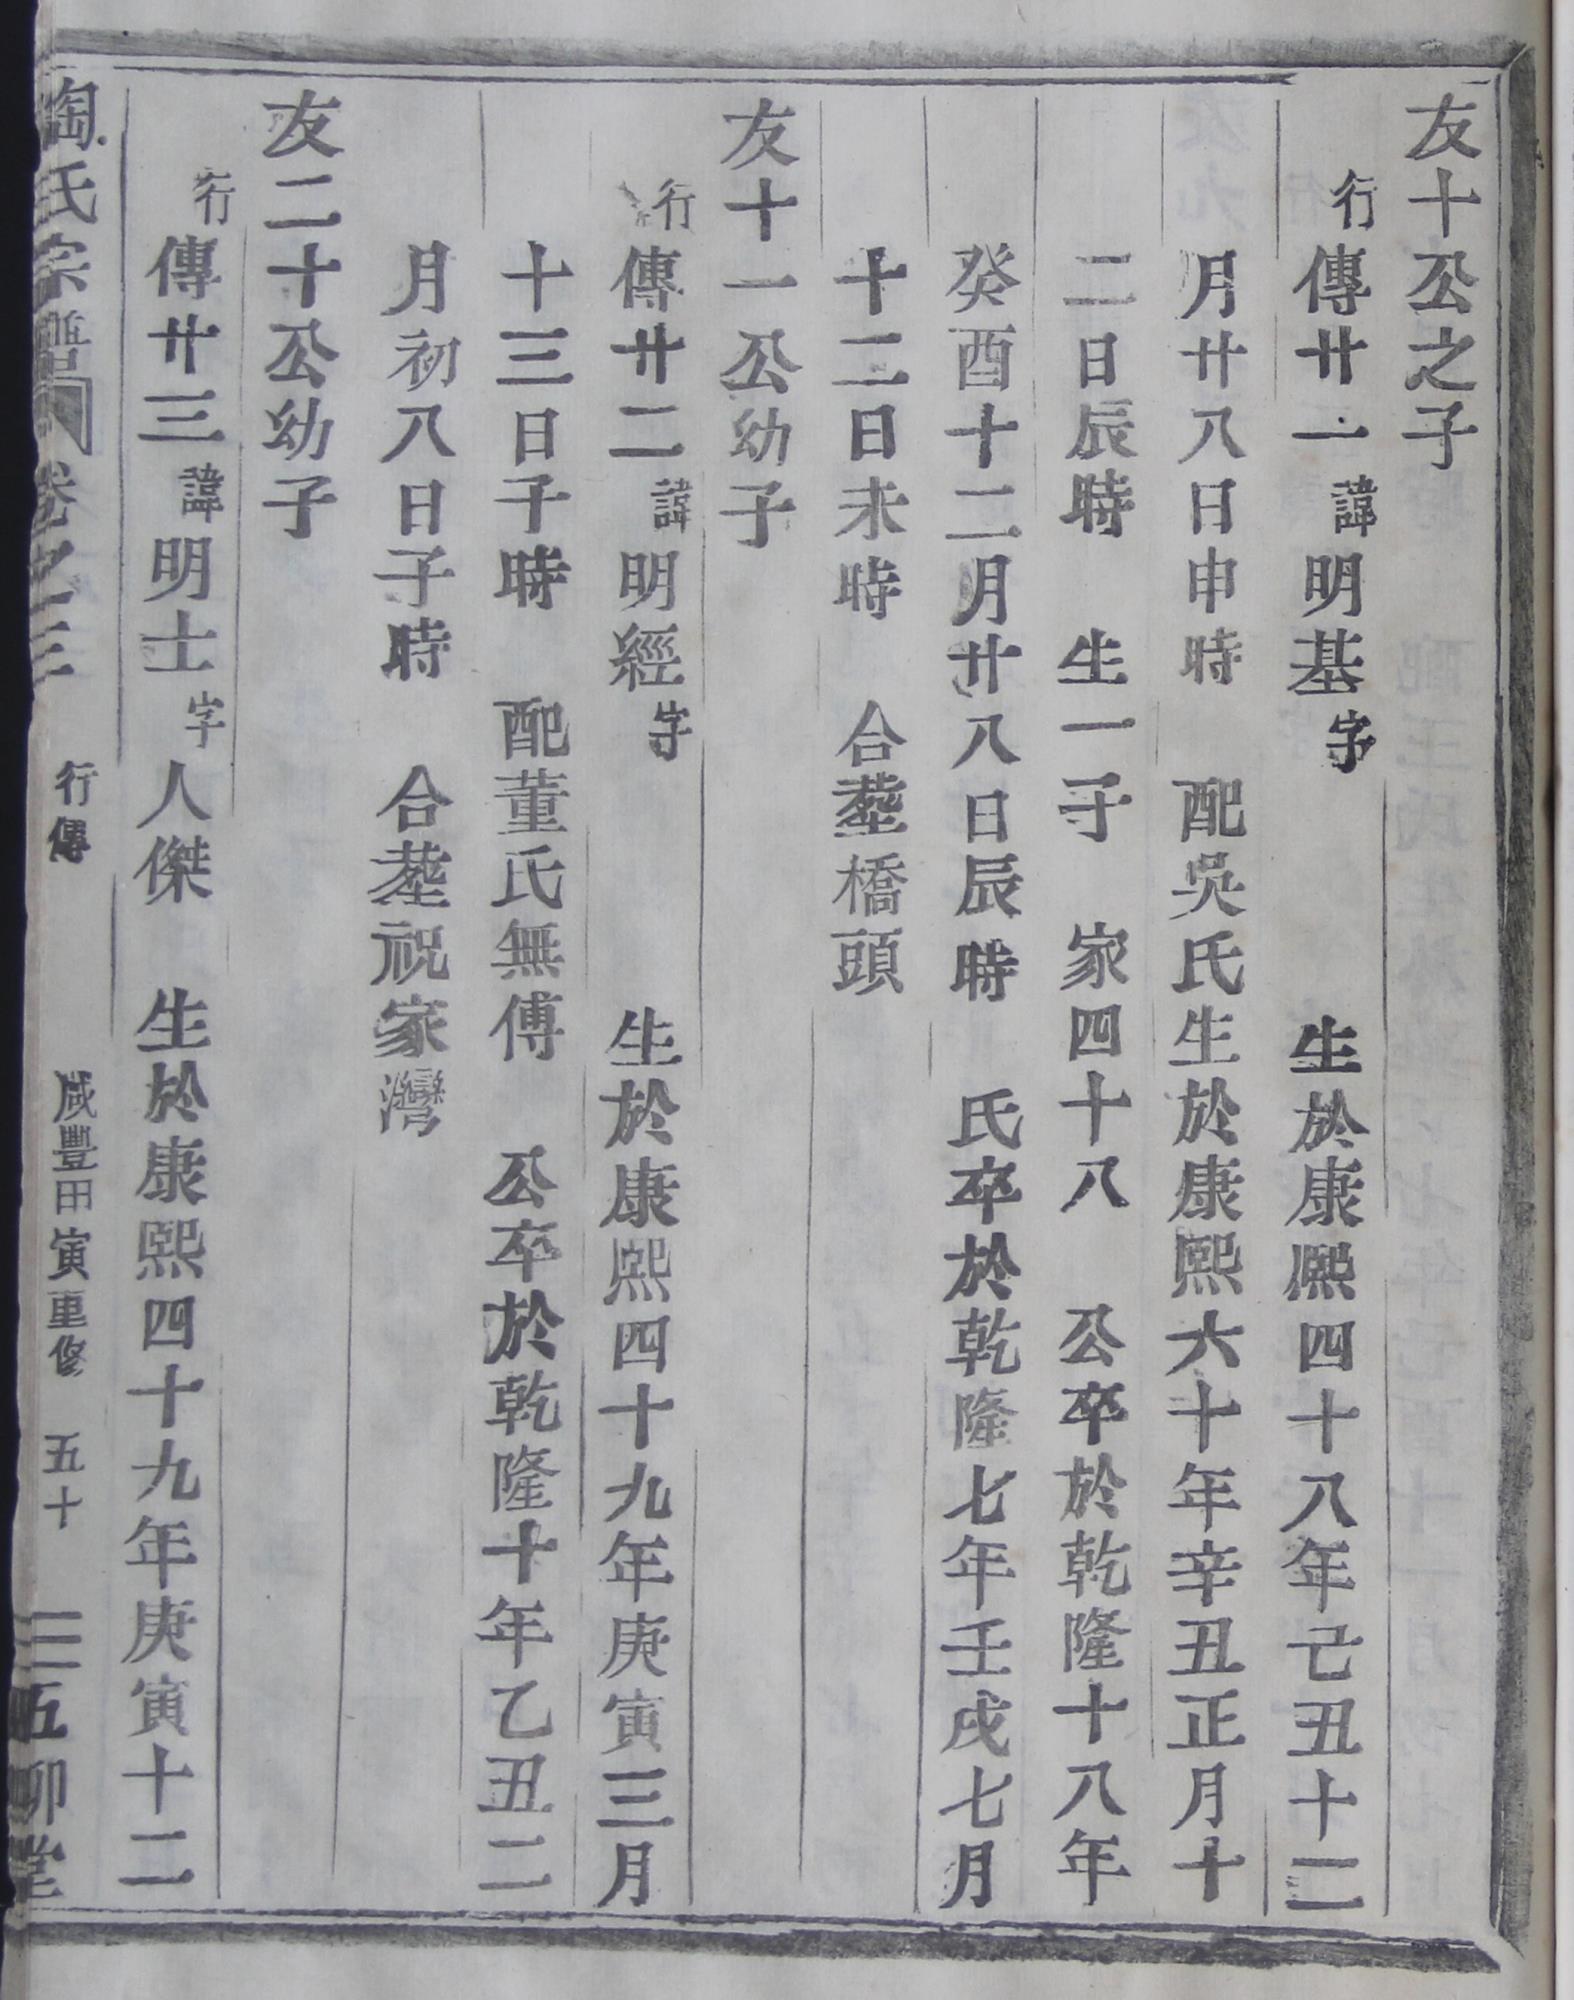 友十公之子
行傳廿一諱明基字 生於康熙四十八年己丑十二
月廿八日申時 配吳氏生於康熙六十年辛丑正月十
二日辰時 生一子 家四十八 公卒於乾隆十八年
癸酉十二月廿八日辰時 氏卒於乾隆七年壬戌七月
十二日未時 合塟橋頭
友十一公幼子
行傳廿二諱明經字 生於康熙四十九年庚寅三月
十三日子時 配董氏無傅 公卒於乾隆十年乙丑二
月初八日子時 合塟祝家灣
友二十公幼子
行傳廿三諱明士字人傑 生於康熙四十九年庚寅十二
陶氏宗譜 卷之三 行傳 咸豐甲寅重修 五十 五柳堂